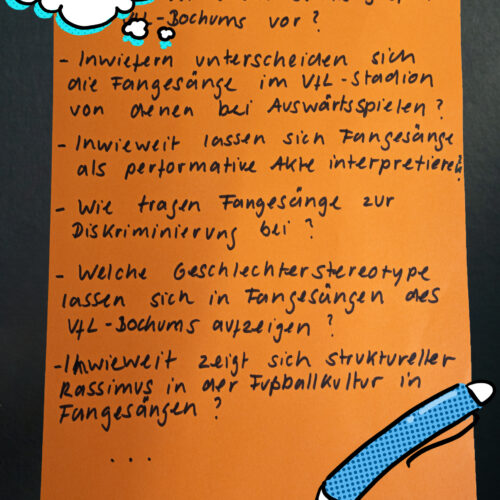 VfL-Bochums vor?
- Inwiefern unterscheiden sich
die Fangesänge im VfL-Stadion
von denen bei Auswärtsspielen?
- Inwieweit lassen sich Fangesänge
als performative Akte interpretieren?
- Wie tragen Fangesänge zur
Diskriminierung bei?
- Welche Geschlechterstereotype
lassen sich in Fangesängen des
VfL-Bochums aufzeigen?
- Inwieweit zeigt sich struktureller
Rassimus in der Fußballkultur in
Fangesängen?
...